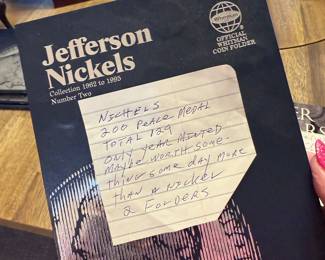 Jefferson
Nickels
Collection 1962 to 1995
Number Two
Whitman
OFFICIAL
WHITMAN
COIN FOLDER
NICKELS
200 PEACE MEDAL
TOTAL 129
ONLY YEAR MINTED.
MAYBE WORTH SOME-
THING SOME DAY MORE
THAN A NICKEL
2 FOLDERS